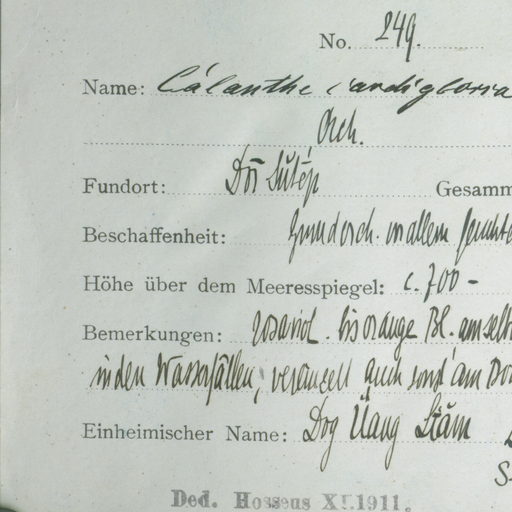 No. 249.
Name: Calanthe cardioglossa
Orch.
Fundort: Dōi Sŭtép Gesamm
Beschaffenheit: Grundorch. vor allem feuchte
Höhe über dem Meeresspiegel: c. 700 -
Bemerkungen: rosaviol. bis orange Bl. am selb
in den Wasserfällen, vereinzelt auch sonst am Doi
Einheimischer Name: Dog Üang
Ded. Hosseus XI.1911.